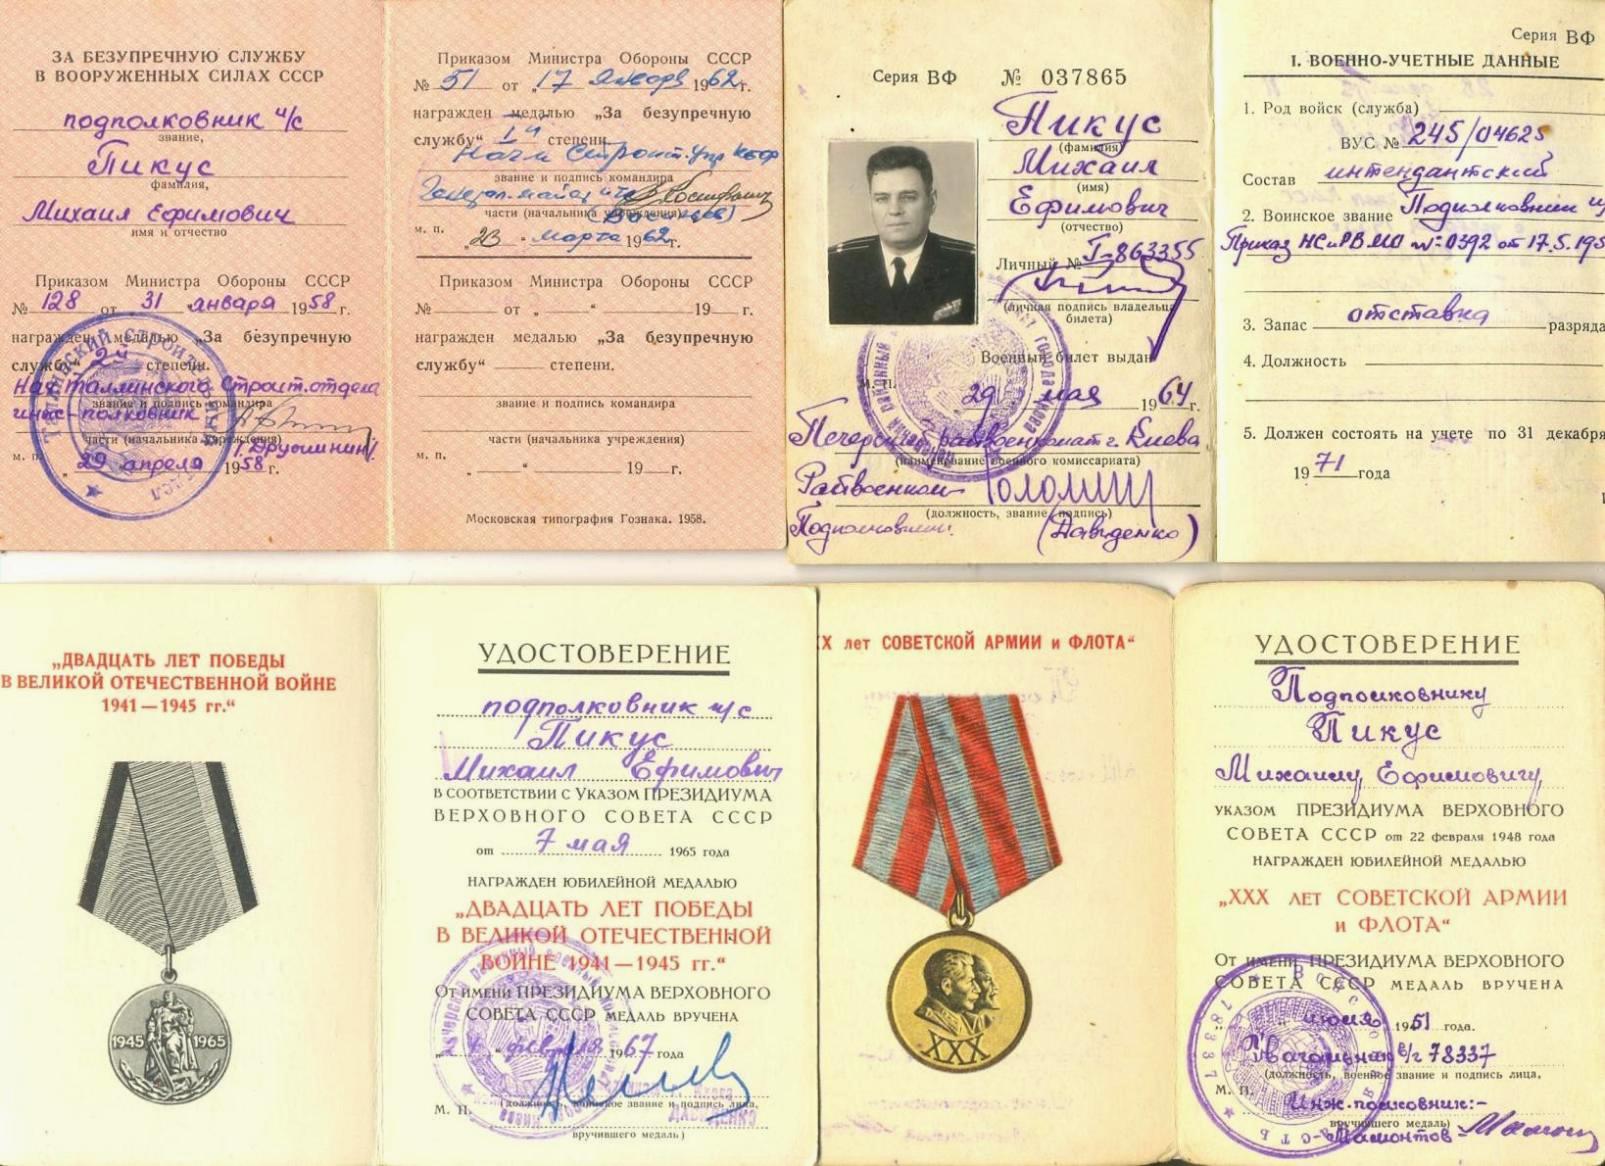 ЗА БЕЗУПРЕЧНУЮ СЛУЖБУ
В ВООРУЖЕННЫХ СИЛАХ СССР
подполковник и/с
звание,
Пикус
фамилия,
Михаил Ефимович
имя и отчество
Приказом Министра Обороны СССР
№ 128 от „31 января 1958 г.
награжден медалью „За безупречную
службу“ 2й степени.
Нач Таллинского Строит.отдела
звание и подпись командира
инж-полковник
части (начальника учреждения)
м. п. „29 апреля 1958 г.
Приказом Министра Обороны СССР
№ 51 от „17 января 1962 г.
награжден медалью „За безупречную
службу“ 1й степени.
Нач Строит. Упр КБФ
звание и подпись командира
Генерал-майор
части (начальника учреждения)
м. п. „23“ марта 1962 г.
Приказом Министра Обороны СССР
№ от „ “ 19 г.
награжден медалью „За безупречную
службу“ степени.
звание и подпись командира
части (начальника учреждения)
м. п. „ “ 19 г.
Московская типография Гознака. 1958.
Серия ВФ № 037865
Пикус
(фамилия)
Михаил
(имя)
Ефимович
(отчество)
Личный № Г-863355
(личная подпись владельца
билета)
Военный билет выдан
М. П.
29 мая 1964 г.
Печерский райвоенкомат г. Киева
(наименование военного комиссариата)
Райвоенком
(должность, звание, подпись)
Подполковник (Давиденко)
Серия ВФ
I. ВОЕННО-УЧЕТНЫЕ ДАННЫЕ
1. Род войск (служба)
ВУС № 245/04625
Состав интендантский
2. Воинское звание Подполковник и/с
Приказ НСиРВМО № 0392 от 17.5.195
3. Запас отставка разряда
4. Должность
5. Должен состоять на учете по 31 декабря
1971 года
„ДВАДЦАТЬ ЛЕТ ПОБЕДЫ
В ВЕЛИКОЙ ОТЕЧЕСТВЕННОЙ ВОЙНЕ
1941—1945 гг.“
1945 1965
УДОСТОВЕРЕНИЕ
подполковник и/с
Пикус
Михаил Ефимович
В СООТВЕТСТВИИ С УКАЗОМ ПРЕЗИДИУМА
ВЕРХОВНОГО СОВЕТА СССР
от 7 мая 1965 года
НАГРАЖДЕН ЮБИЛЕЙНОЙ МЕДАЛЬЮ
„ДВАДЦАТЬ ЛЕТ ПОБЕДЫ
В ВЕЛИКОЙ ОТЕЧЕСТВЕННОЙ
ВОЙНЕ 1941—1945 гг.“
ОТ имени ПРЕЗИДИУМА ВЕРХОВНОГО
СОВЕТА СССР МЕДАЛЬ ВРУЧЕНА
„4“ февраля 1967 года
(должность, воинское звание и подпись лица,
М. П. вручившего медаль)
XX лет СОВЕТСКОЙ АРМИИ и ФЛОТА“
XXX
УДОСТОВЕРЕНИЕ
Подполковнику
Пикус
Михаилу Ефимовичу
УКАЗОМ ПРЕЗИДИУМА ВЕРХОВНОГО
СОВЕТА СССР от 22 февраля 1948 года
НАГРАЖДЕН ЮБИЛЕЙНОЙ МЕДАЛЬЮ
„XXX ЛЕТ СОВЕТСКОЙ АРМИИ
и ФЛОТА“
ОТ имени ПРЕЗИДИУМА ВЕРХОВНОГО
СОВЕТА СССР МЕДАЛЬ ВРУЧЕНА
июня 1951 года.
Начальник в/ч 78337
(должность, военное звание и подпись лица,
М. П. Инж.-полковник:-
вручившего медаль)
-Мамонтов-